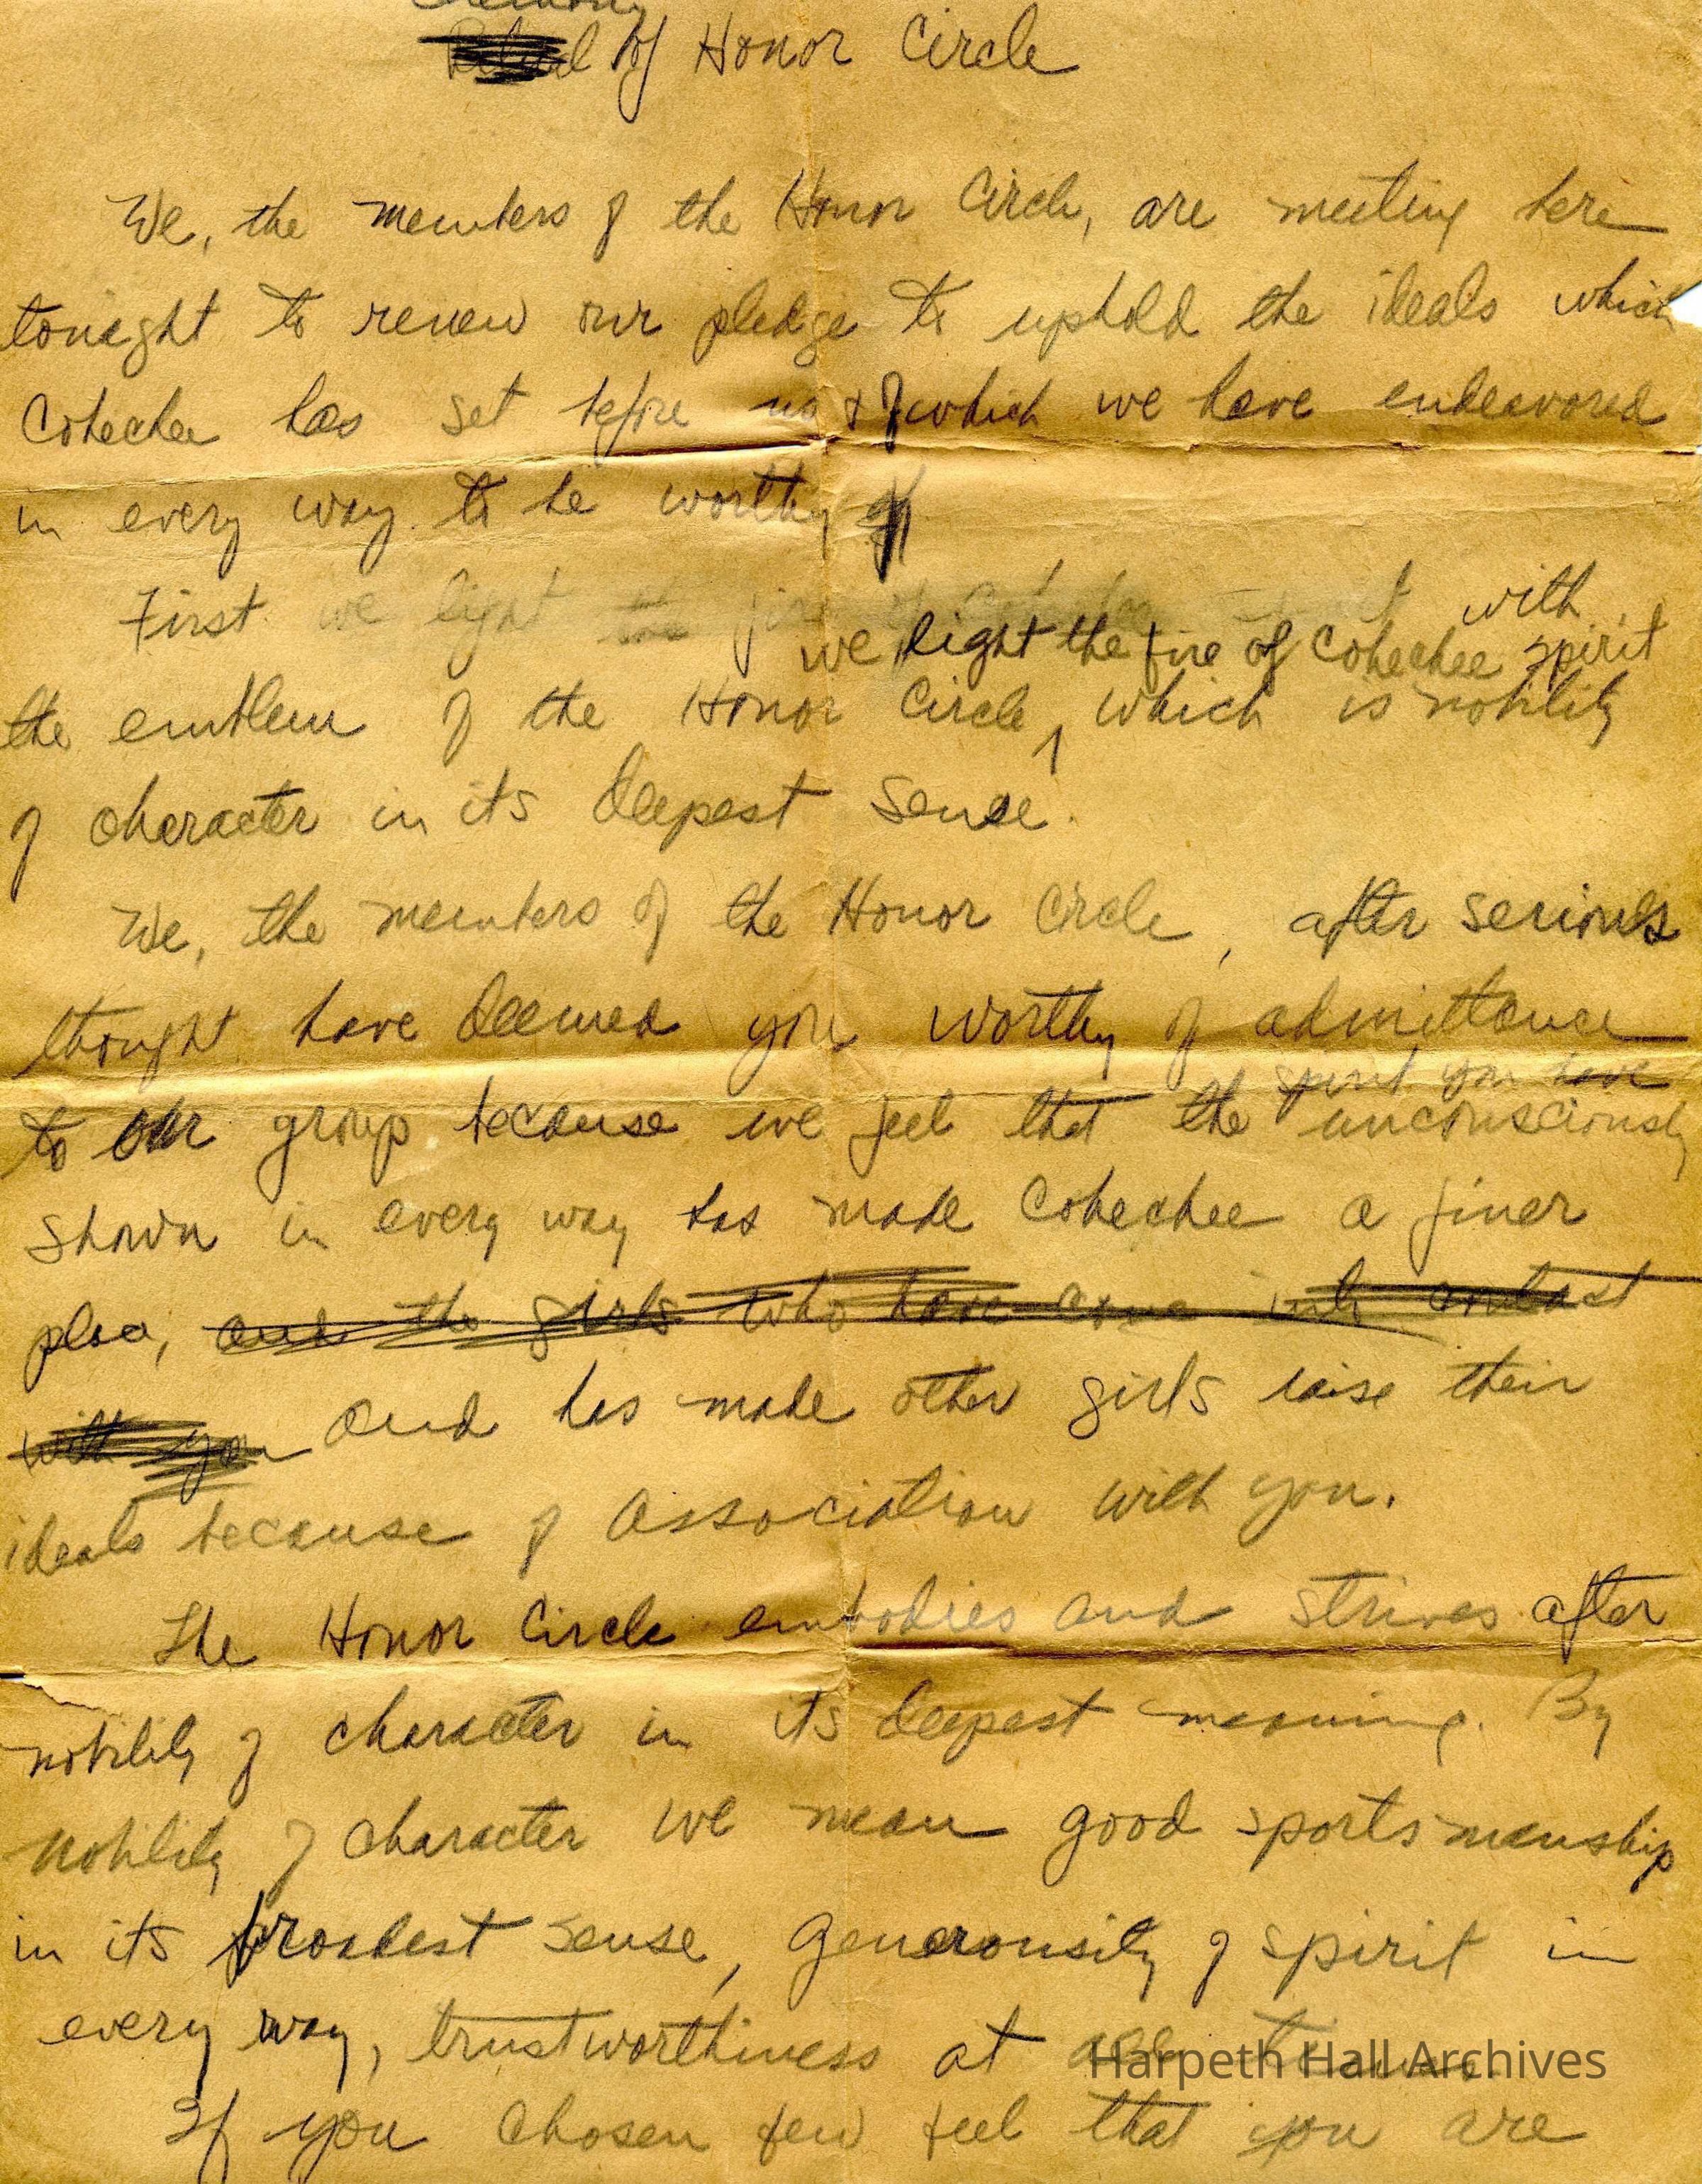 Ceremony
Ritual of Honor Circle
We, the members of the Honor Circle, are meeting here
tonight to renew our pledge to uphold the ideals which
Cohechee has set before us & of which we have endeavored
in every way to be worthy of
First we light the fire of
with
we light the fire of Cohechee spirit
the emblem of the Honor Circle, which is nobility
of character in its deepest sense.
We, the members of the Honor Circle, after serious
thought have deemed you worthy of admittance
spirit you have
to our group because we feel that the unconsciously
shown in every way has made Cohechee a finer
place, and the girls who have come into contact
with you and has made other girls raise their
ideals because of association with you.
The Honor Circle embodies and strives after
nobility of character in its deepest meaning. By
nobility of character we mean good sportsmanship
in its broadest sense, generousity of spirit in
every way, trustworthiness at all times
Harpeth Hall Archives
If you chosen few feel that you are